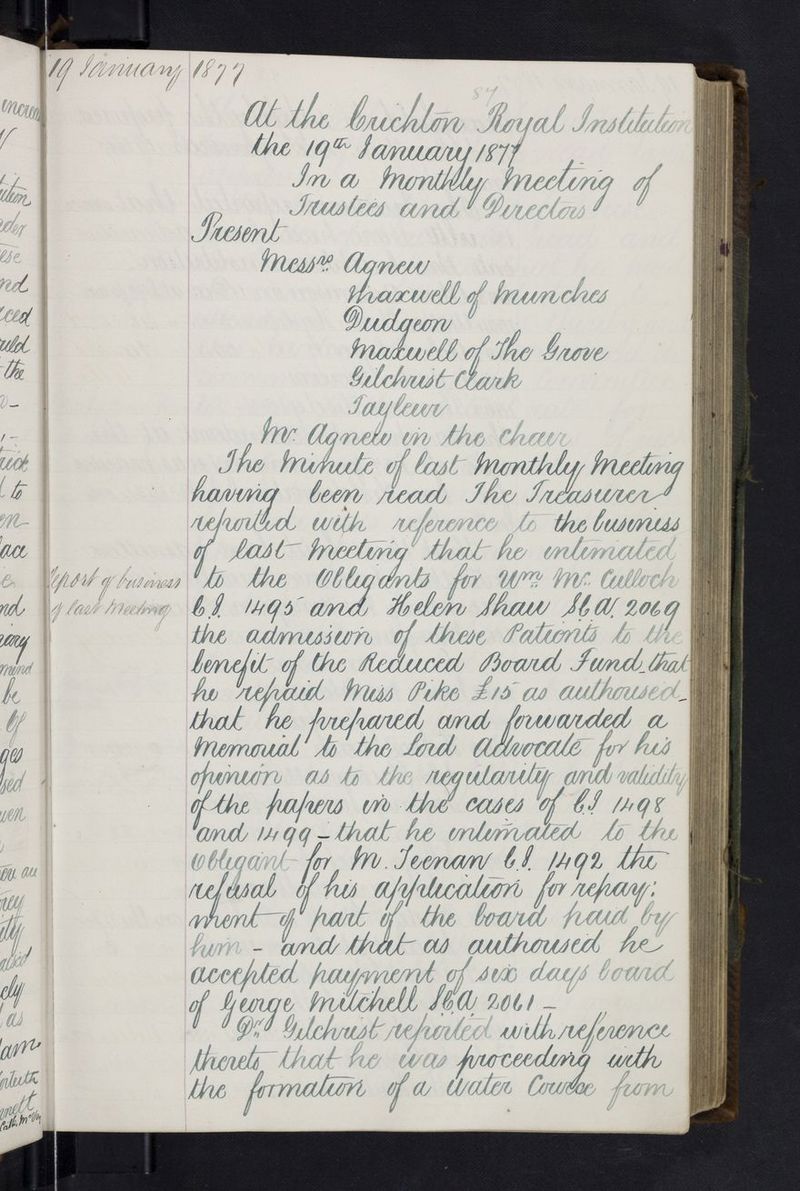 19 January 1877
87
At the Crichton Royal Institution
the 19th January 1877
In a Monthly Meeting of
Trustees and Directors
Present
Messrs. Agnew
Maxwell of Munches
Dudgeon
Maxwell of The Grove
Gilchrist Clark
Tayleur
Mr. Agnew in the chair
The Minute of last Monthly Meeting
having been read The Treasurer
reported with reference to the business
of last Meeting that he intimated
Report of business
of last Meeting
to the Obligants for Wm. Mc.Culloch
C.I. 1495 and Helen Shaw S.C.A. 2069
the admission of these Patients to the
benefit of the Reduced Board Fund_that
he repaid Miss Pike £15 as authorised_
that he prepared and forwarded a
Memorial to the Lord Advocate for his
opinion as to the regularity and validity
of the papers in the cases of C.I 1498
and 1499 _ that he intimated to the
Obligant for M. Teenan C.I. 1492 the
refusal of his application for repay:
ment of part of the board paid by
him - and that as authorised he
accepted payment of six days board
of George Mitchell S.C.A 2061 _
Dr. Gilchrist reported with reference
thereto that he was proceeding with
the formation of a Water Course from